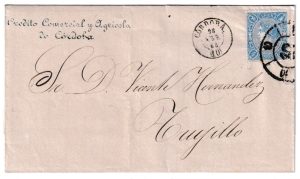 Credito Comercial y Agricola
de Córdoba
CORDOBA
S. D. Vicente Hernandez
Trujillo